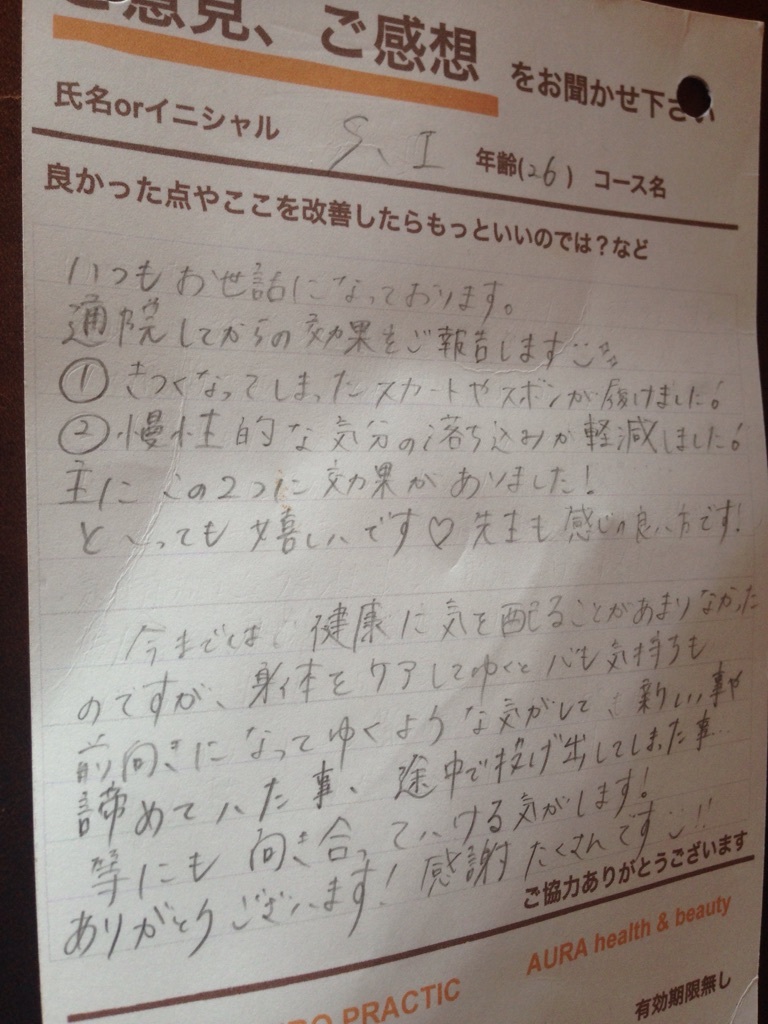 ご意見、ご感想 をお聞かせ下さい
氏名orイニシャル S、I 年齢(26) コース名
良かった点やここを改善したらもっといいのでは？など
いつもお世話になっております。
通院してからの効果をご報告します
① きつくなってしまったスカートやズボンが履けました！
② 慢性的な気分の落ち込みが軽減しました！
主にこの2つに効果がありました！
とっっても嬉しいです♡ 先生も感じの良い方です！
今までは健康に気を配ることがあまりなかった
のですが、身体をケアしてゆくと心も気持ちも
前向きになってゆくような気がして 新しい事や
諦めていた事、途中で投げ出してしまった事…
等にも向き合っていける気がします！
ありがとうございます！感謝たくさんです!!
ご協力ありがとうございます
AURA health & beauty
RO PRACTIC
有効期限無し